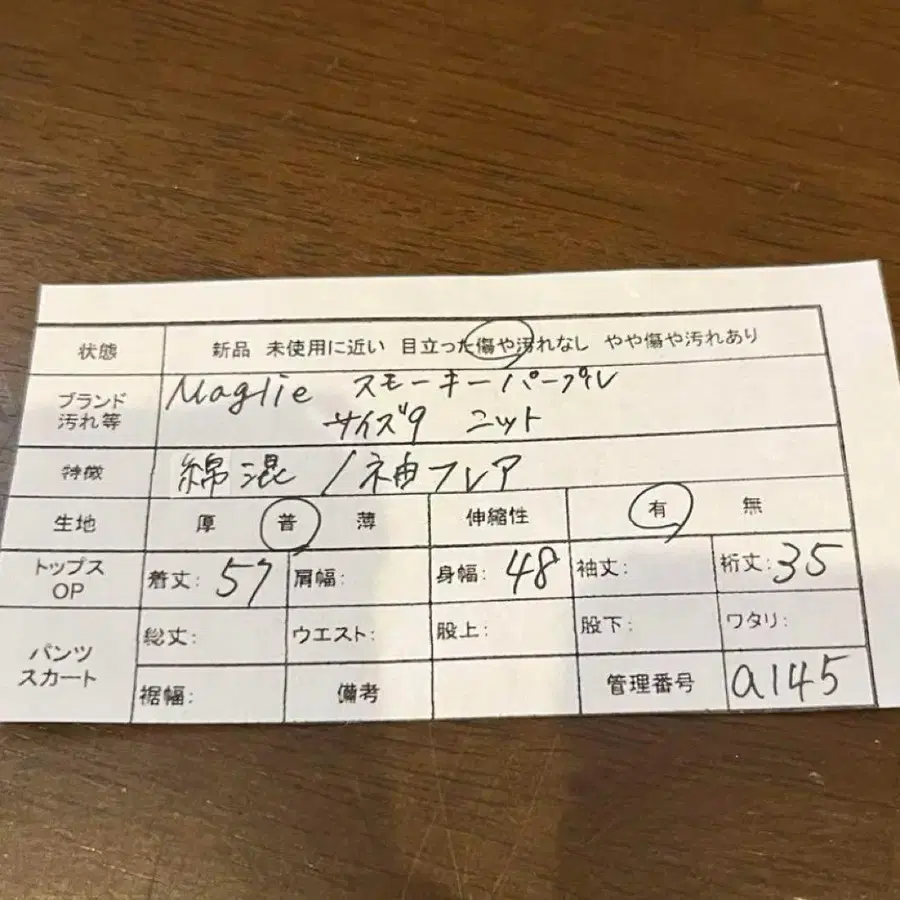 状態 新品 未使用に近い 目立った傷や汚れなし やや傷や汚れあり
ブランド Maglie スモーキーパープル
汚れ等 サイズ9 ニット
特徴 綿混 / 袖フレア
生地 厚 普 薄 伸縮性 有 無
トップス OP 着丈: 57 肩幅: 身幅: 48 袖丈: 裄丈: 35
パンツ スカート 総丈: ウエスト: 股上: 股下: ワタリ:
裾幅: 備考 管理番号 a145